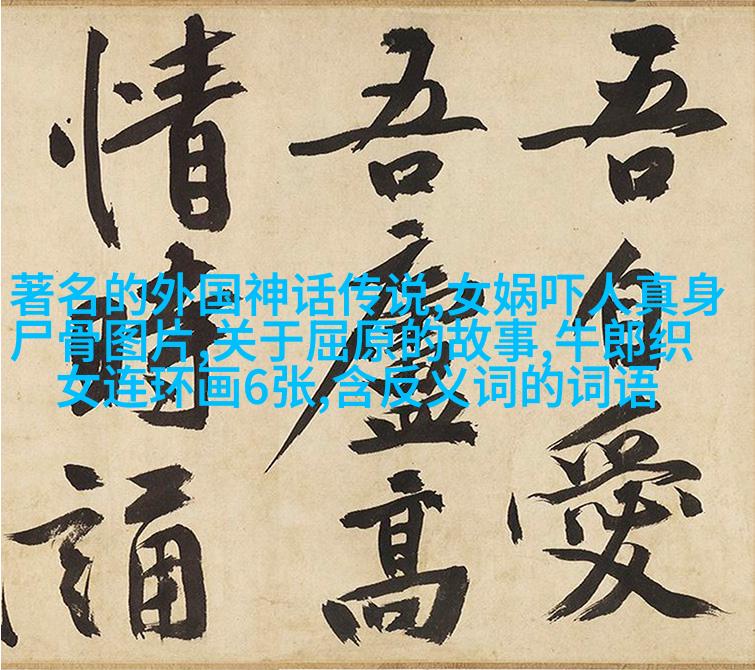 吾自愛
吾廬高
情時誦
著名的外国神话传说,女娲吓人真身
尸骨图片,关于屈原的故事,牛郎织
女连环画6张,含反义词的词语